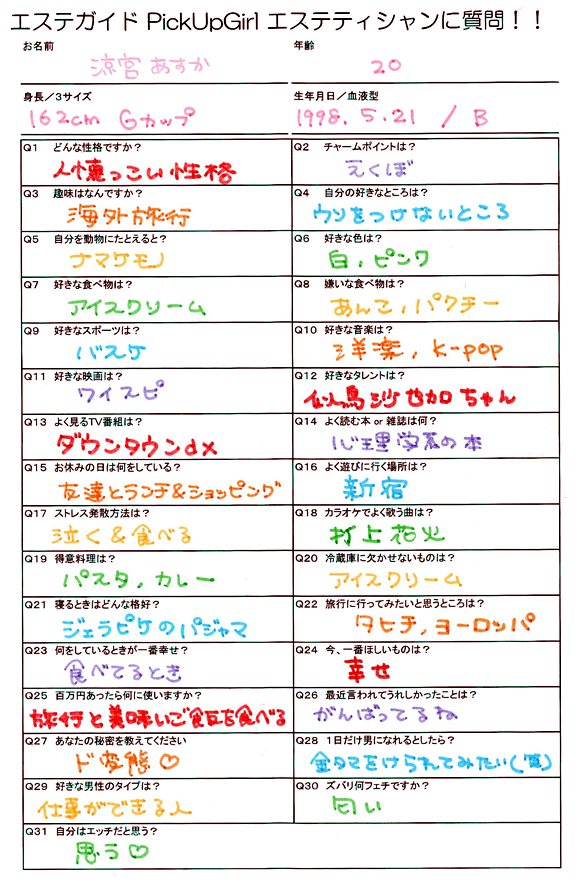 エステガイド PickUpGirl エステティシャンに質問！！
お名前
涼宮 あすか
年齢
20
身長／3サイズ
162cm Gカップ
生年月日／血液型
1998. 5. 21 / B
Q1 どんな性格ですか？
人懐っこい性格
Q2 チャームポイントは？
えくぼ
Q3 趣味はなんですか？
海外旅行
Q4 自分の好きなところは？
ウソをつけないところ
Q5 自分を動物にたとえると？
ナマケモノ
Q6 好きな色は？
白, ピンク
Q7 好きな食べ物は？
アイスクリーム
Q8 嫌いな食べ物は？
あんこ, パクチー
Q9 好きなスポーツは？
バスケ
Q10 好きな音楽は？
洋楽, K-POP
Q11 好きな映画は？
ワイスピ
Q12 好きなタレントは？
似鳥沙也加ちゃん
Q13 よく見るTV番組は？
ダウンタウンdx
Q14 よく読む本 or 雑誌は何？
心理学系の本
Q15 お休みの日は何をしている？
友達とランチ&ショッピング
Q16 よく遊びに行く場所は？
新宿
Q17 ストレス発散方法は？
泣く&食べる
Q18 カラオケでよく歌う曲は？
打上花火
Q19 得意料理は？
パスタ, カレー
Q20 冷蔵庫に欠かせないものは？
アイスクリーム
Q21 寝るときはどんな格好？
ジェラピケのパジャマ
Q22 旅行に行ってみたいと思うところは？
タヒチ, ヨーロッパ
Q23 何をしているときが一番幸せ？
食べてるとき
Q24 今、一番ほしいものは？
幸せ
Q25 百万円あったら何に使いますか？
旅行と美味いご飯を食べる
Q26 最近言われてうれしかったことは？
がんばってるね
Q27 あなたの秘密を教えてください
ド変態♡
Q28 1日だけ男になれるとしたら？
金タマをけられてみたい(笑)
Q29 好きな男性のタイプは？
仕事ができる人
Q30 ズバリ何フェチですか？
匂い
Q31 自分はエッチだと思う？
思う♡